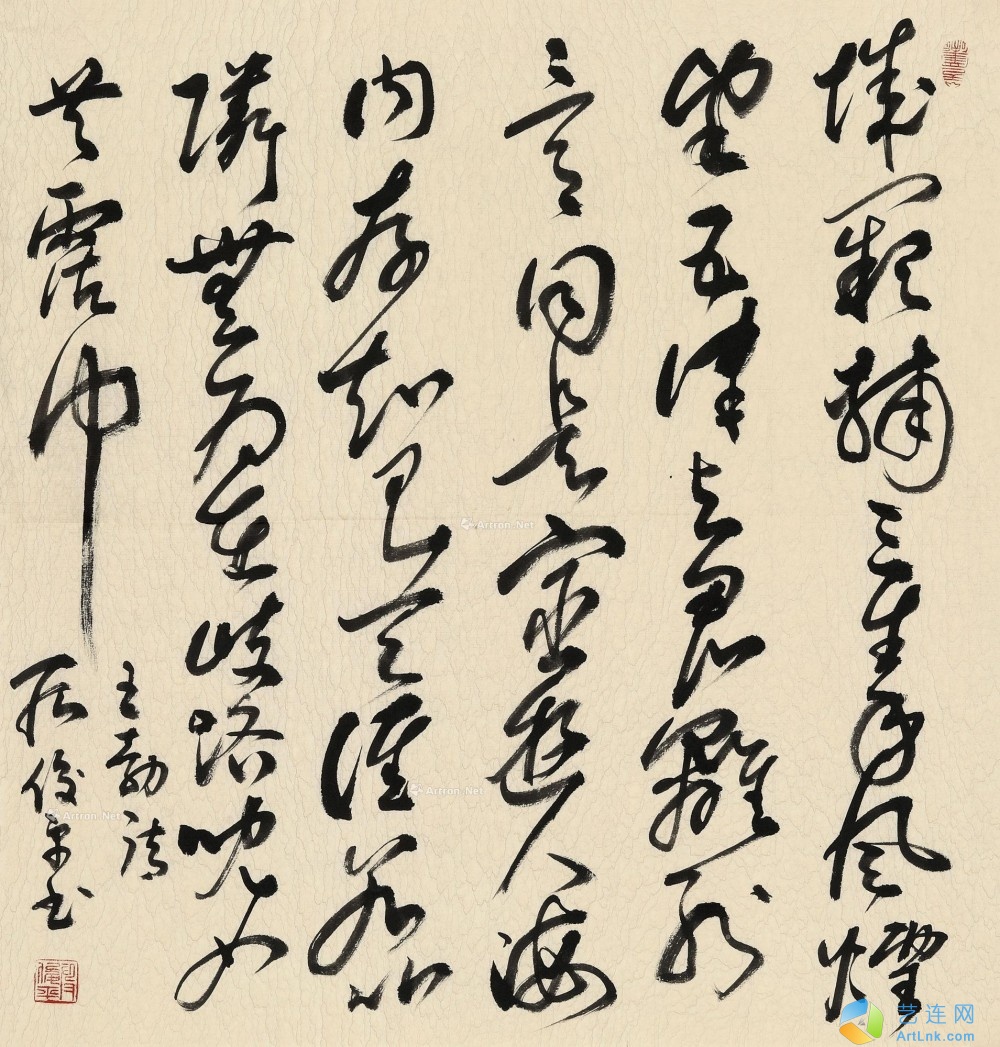 城闕輔三秦風煙
望五津与君離別
意同是宦遊人海
内存知己天涯若比
隣無為在岐路兒女
共霑巾
王勃詩
俊平书
Artron.Net
Artron.Net
Artron.Net
艺连网
ArtLnk.com